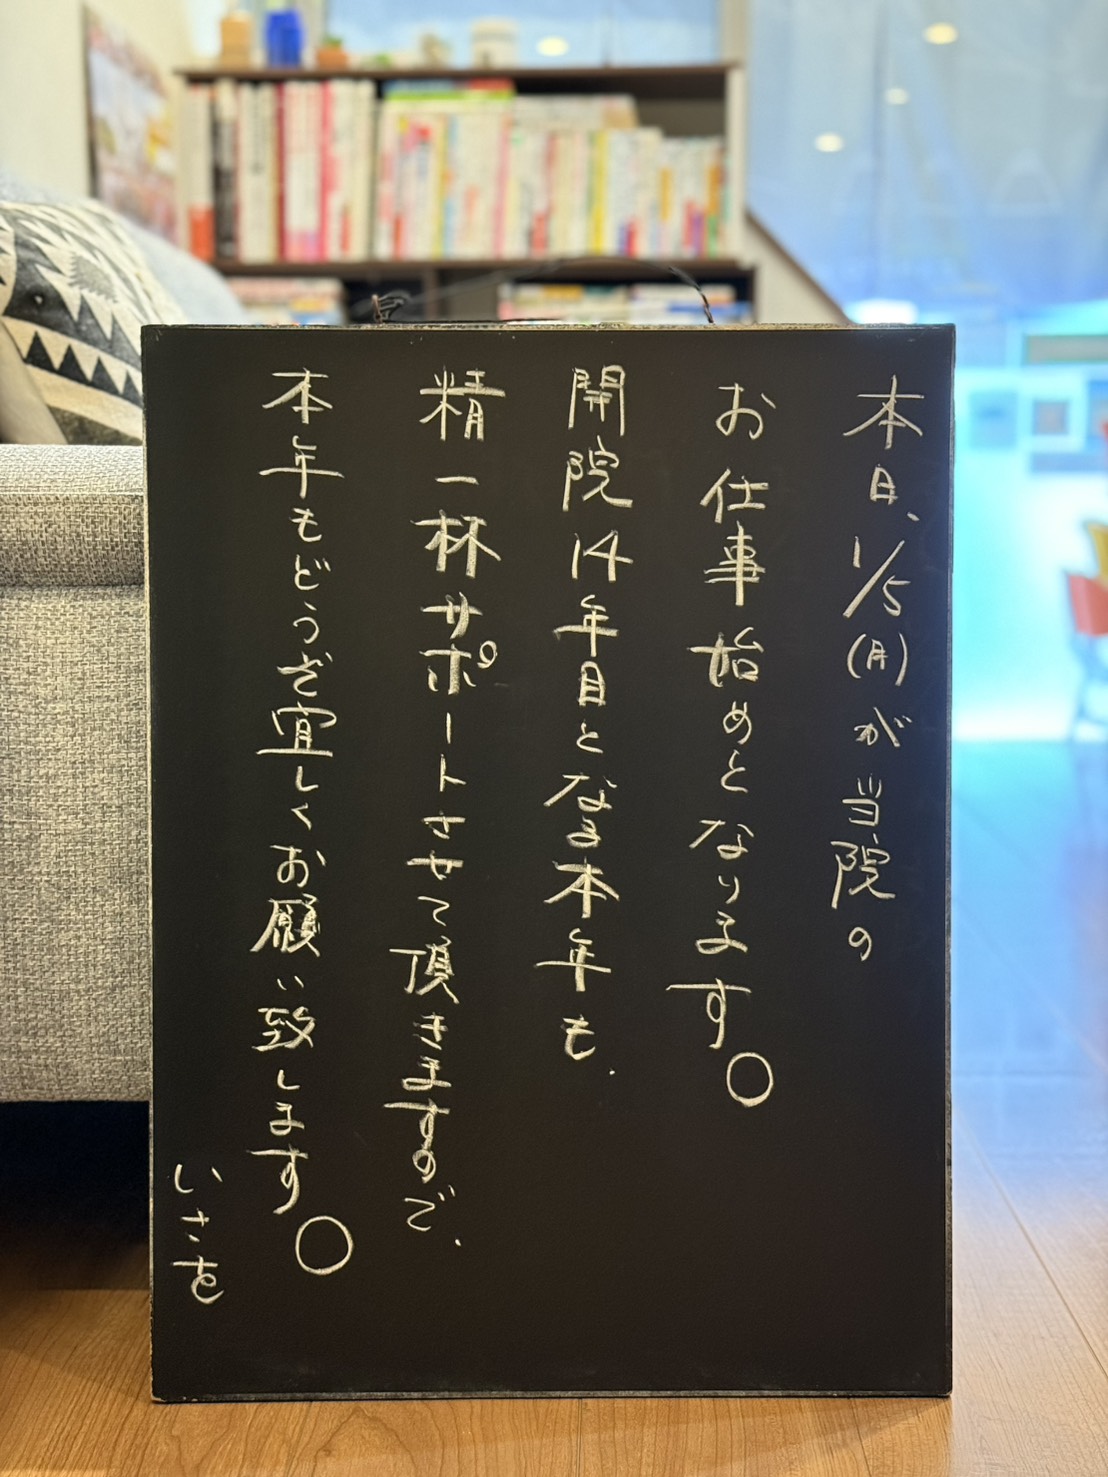 本日、1/5(月)が当院の
お仕事始めとなります。
開院14年目となる本年も、
精一杯サポートさせて頂きますので、
本年もどうぞ宜しくお願い致します。
いさを